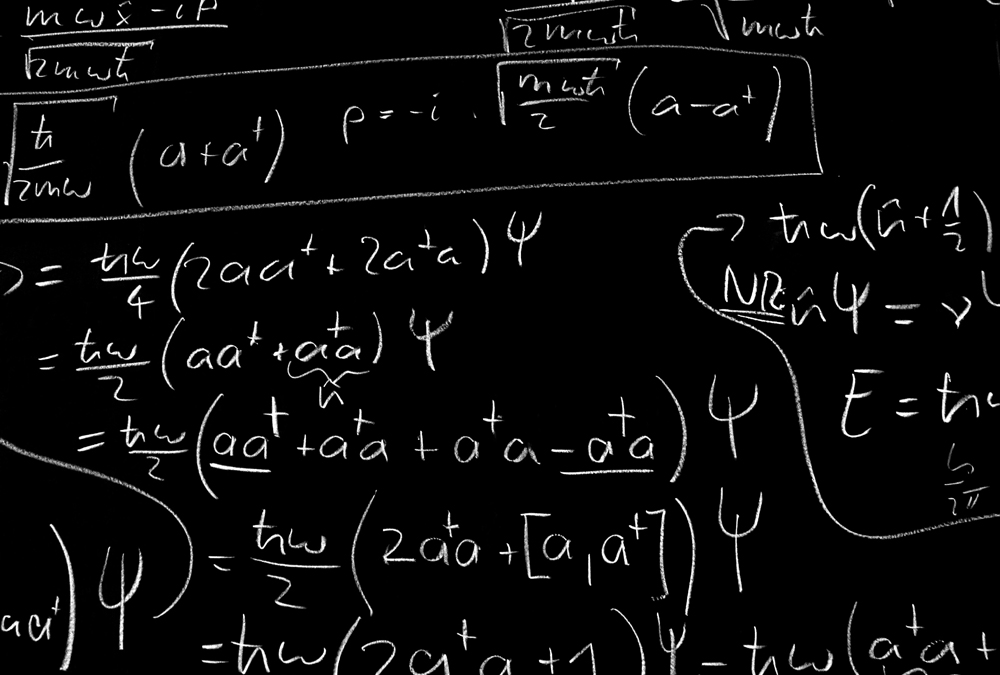 mωx̂ - ip / √2mωħ √2mωħ √mωħ
√ħ/2mω (a+a†) p = -i · √mωħ/2 (a-a†)
= ħω/4 (2aa† + 2a†a) Ψ
= ħω/2 (aa† + a†a) Ψ
n
= ħω/2 (aa† + a†a + a†a - a†a) Ψ
= ħω/2 (2a†a + [a, a†]) Ψ
= ħω (2a†a + 1) Ψ = ħω (a†a +
aa†) Ψ
→ ħω (n̂ + 1/2)
NR n̂Ψ = νΨ
E = ħω
h/2π